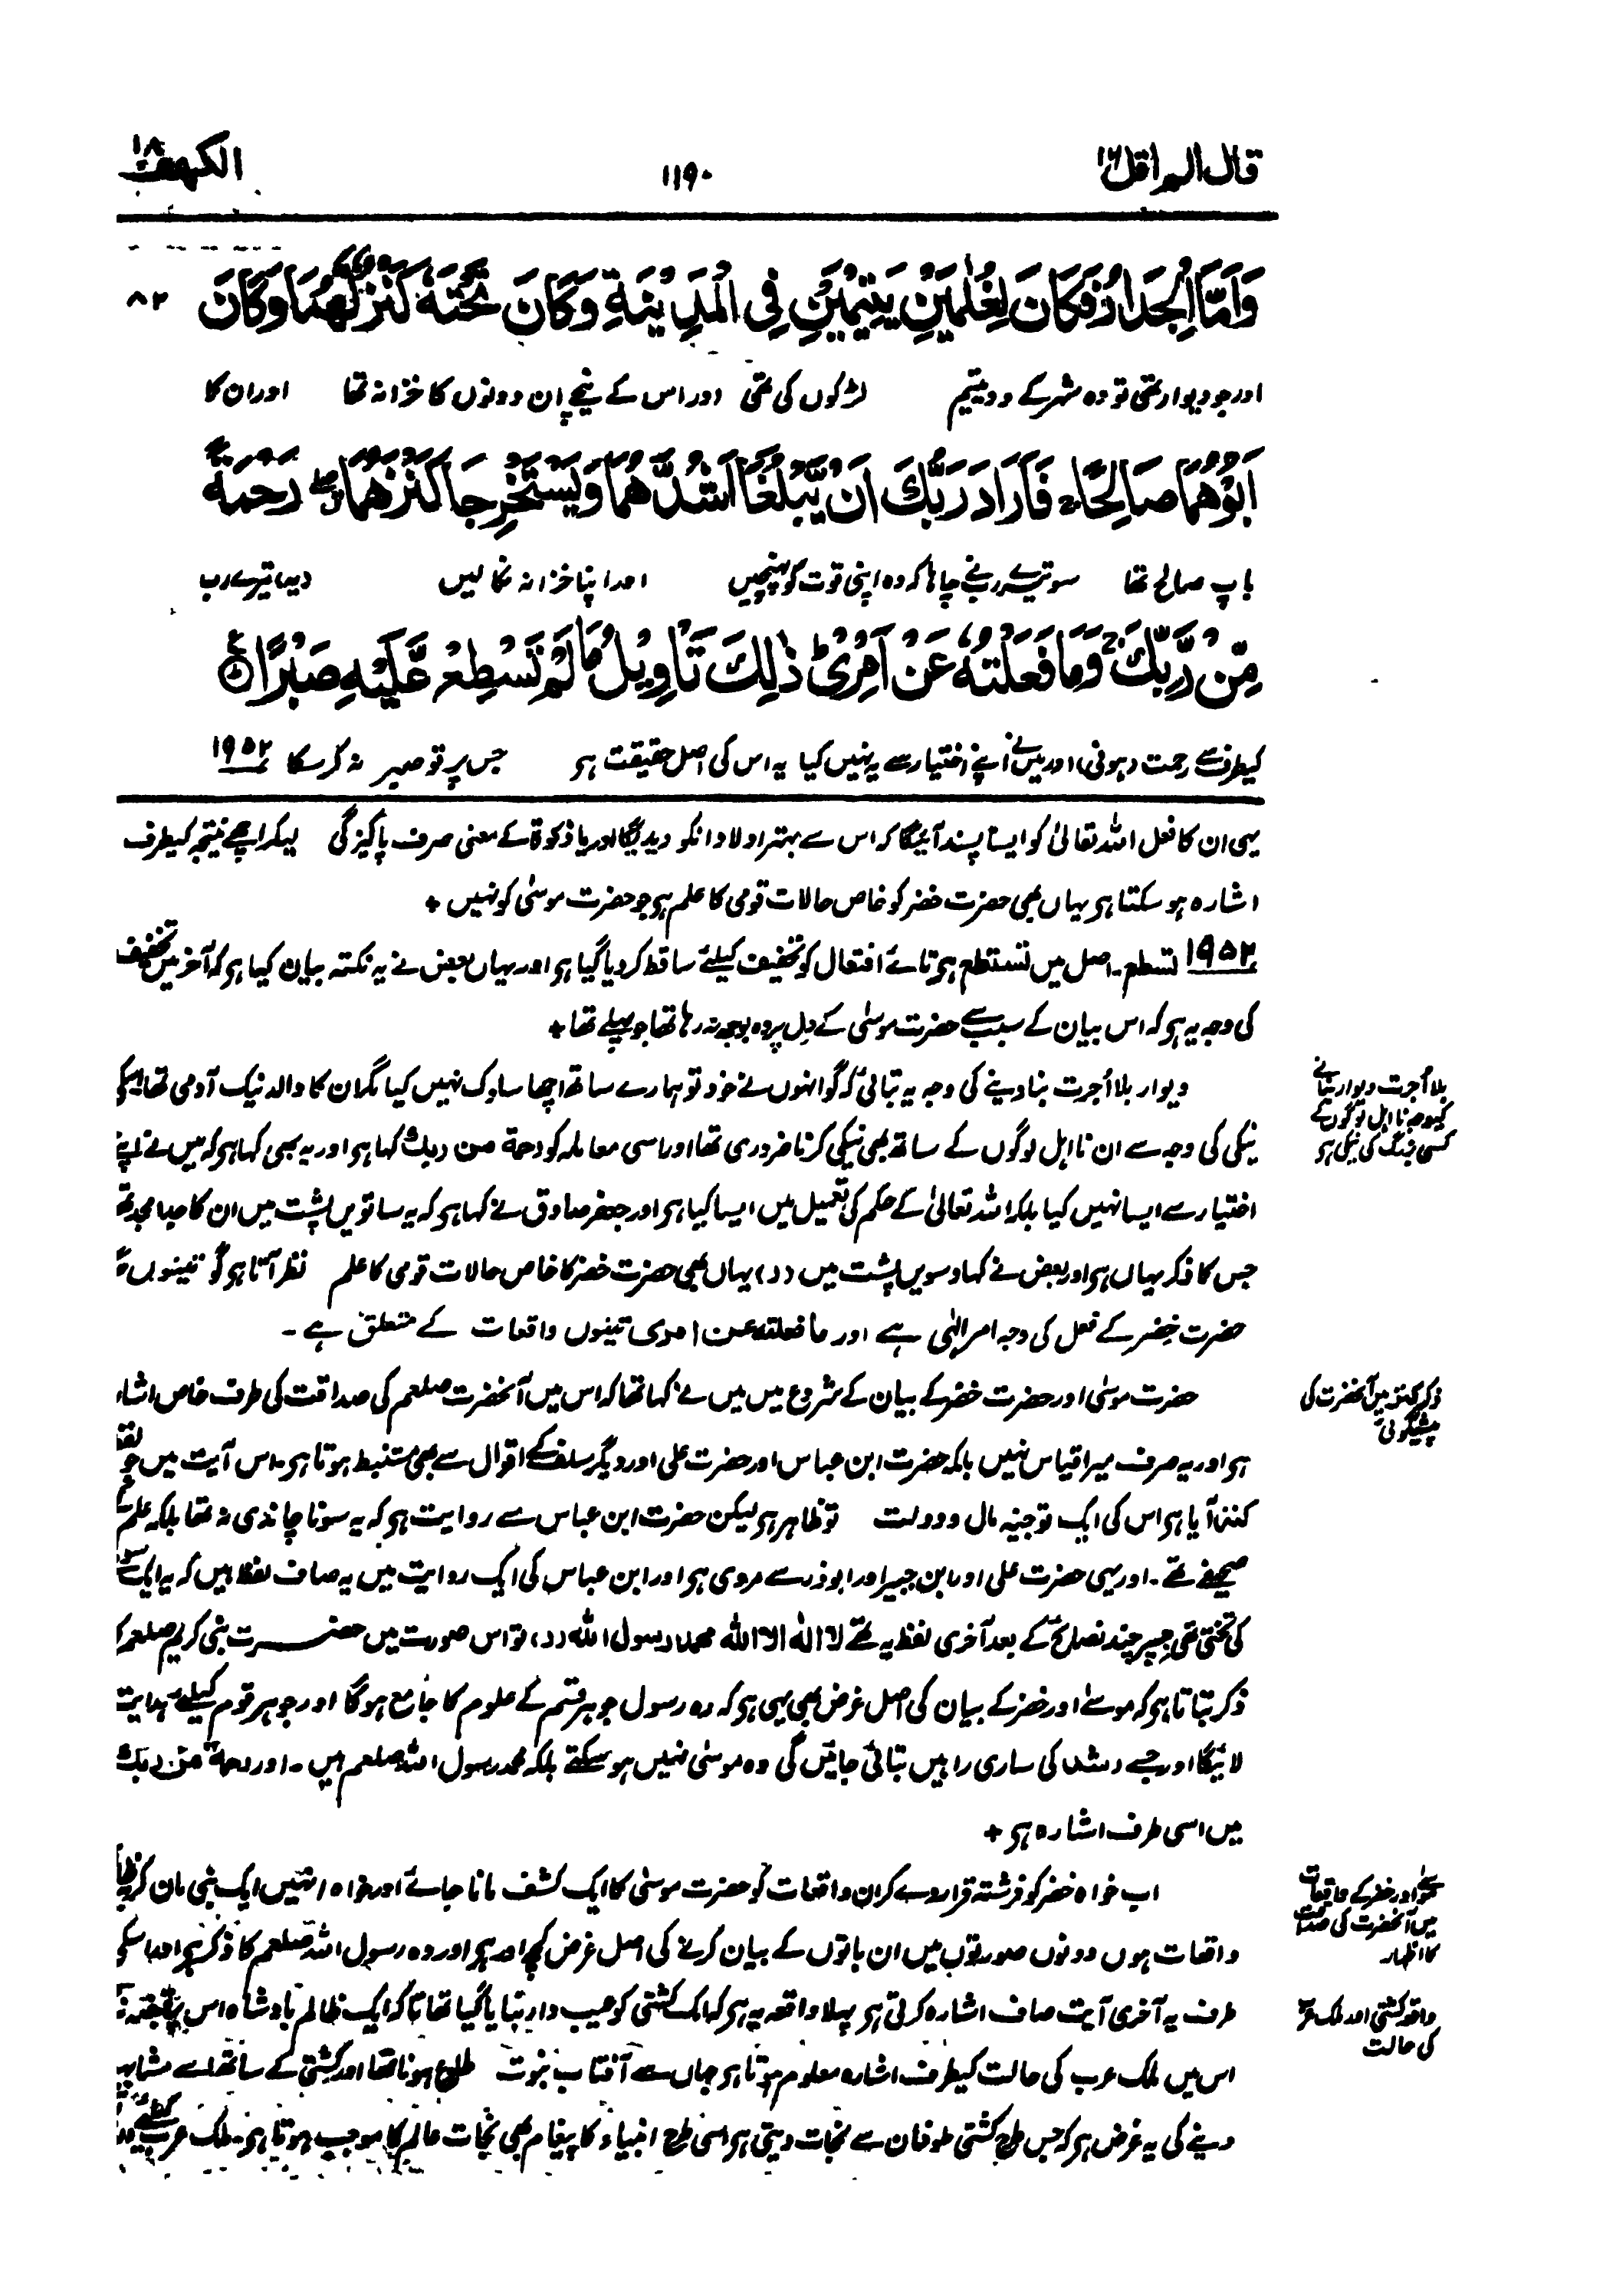 قال الم اقل ۱۶
۱۱۹۰
الکھف ۱۸
وَاَمَّا الْجِدَارُ فَكَانَ لِغُلٰمَيْنِ يَتِيْمَيْنِ فِي الْمَدِيْنَةِ وَكَانَ تَحْتَهٗ كَنْزٌ لَّهُمَا وَكَانَ ۸۲
اور جو دیوار تھی تو وہ شہر کے دو یتیم لڑکوں کی تھی اور اس کے نیچے ان دونوں کا خزانہ تھا اور ان کا
اَبُوْهُمَا صَالِحًا ۚ فَاَرَادَ رَبُّكَ اَنْ يَّبْلُغَآ اَشُدَّهُمَا وَيَسْتَخْرِجَا كَنْزَهُمَا ۖ رَحْمَةً
باپ صالح تھا سو تیرے رب نے چاہا کہ وہ اپنی قوت کو پہنچیں اور اپنا خزانہ نکالیں (یہ) تیرے رب
مِّنْ رَّبِّكَ ۚ وَمَا فَعَلْتُهٗ عَنْ اَمْرِيْ ؕ ذٰلِكَ تَاْوِيْلُ مَا لَمْ تَسْطِعْ عَّلَيْهِ صَبْرًا
کیطرف سے رحمت (ہوئی) اور میں نے اپنے اختیار سے یہ نہیں کیا یہ اس کی اصل حقیقت ہے جس پر تو صبر نہ کر سکا ۱۹۵۲
یہی ان کا فعل اللہ تعالیٰ کو ایسا پسند آئیگا کہ اس سے بہتر اولاد انکو دیدیگا اور یا زکوٰة کے معنی صرف پاکیزگی لیکر اچھے نتیجہ کیطرف
اشارہ ہو سکتا ہی یہاں بھی حضرت خضر کو خاص حالات قومی کا علم ہی جو حضرت موسیٰ کو نہیں +
۱۹۵۲ تسطع۔ اصل میں تستطع ہی تائے افتعال کو تخفیف کیلئے ساقط کر دیا گیا ہی اور یہاں بعض نے یہ نکتہ بیان کیا ہی کہ آخر میں تخفیف
کی وجہ یہ ہی کہ اس بیان کے سبب سے حضرت موسیٰ کے دل پر وہ بوجھ نہ رہا تھا جو پہلے تھا +
بلا اُجرت دیوار بنانے
کیوجہ نااہل لوگوں کے
کسی بزرگ کی نیکی ہی
دیوار بلا اُجرت بنا دینے کی وجہ یہ بتائی کہ گو انہوں نے خود تو ہمارے ساتھ اچھا سلوک نہیں کیا مگر ان کا والد نیک آدمی تھا اسکی
نیکی کی وجہ سے ان نااہل لوگوں کے ساتھ بھی نیکی کرنا ضروری تھا اور اسی معاملہ کو رحمة من ربك کہا ہی اور یہ بھی کہا ہی کہ میں نے اپنے
اختیار سے ایسا نہیں کیا بلکہ اللہ تعالیٰ کے حکم کی تعمیل میں ایسا کیا ہی اور جعفر صادق نے کہا ہی کہ یہ ساتویں پشت میں ان کا جد امجد تھا
جس کا ذکر یہاں ہی اور بعض نے کہا دسویں پشت میں (ر) یہاں بھی حضرت خضر کا خاص حالات قومی کا علم نظر آتا ہی گو تینوں
حضرت خضر کے فعل کی وجہ امر الٰہی ہے اور ما فعلته عن امری تینوں واقعات کے متعلق ہے ۔
ذکر کنز میں آنحضرت کی
پیشگوئی
حضرت موسیٰ اور حضرت خضر کے بیان کے شروع میں میں نے کہا تھا کہ اس میں آنحضرت صلعم کی صداقت کی طرف خاص اشارہ
ہی اور یہ صرف میرا قیاس نہیں بلکہ حضرت ابن عباس اور حضرت علی اور دیگر سلف کے اقوال سے بھی مستنبط ہوتا ہی۔ اس آیت میں جو لفظ
کنز آیا ہی اس کی ایک توجیہ مال و دولت تو ظاہر ہی لیکن حضرت ابن عباس سے روایت ہی کہ یہ سونا چاندی نہ تھا بلکہ علم کے
صحیفے تھے۔ اور یہی حضرت علی اور ابن جبیر اور ابوذر سے مروی ہی اور ابن عباس کی ایک روایت میں یہ صاف لفظ ہیں کہ یہ ایک سونے
کی تختی تھی جسپر چند نصائح کے بعد آخری لفظ یہ تھے لا اله الا الله محمد رسول الله (ر) تو اس صورت میں حضرت نبی کریم صلعم کا
ذکر بتاتا ہی کہ موسےٰ اور خضر کے بیان کی اصل غرض بھی یہی ہی کہ وہ رسول جو ہر قسم کے علوم کا جامع ہوگا اور جو ہر قوم کیلئے ہدایت
لائیگا اور جسے رشد کی ساری راہیں بتائی جائیں گی وہ موسیٰ نہیں ہو سکتے بلکہ محمد رسول اللہ صلعم ہیں ۔ اور رحمة من ربك
میں اسی طرف اشارہ ہی +
موسےٰ اور خضر کے واقعات
میں آنحضرت کی صداقت
کا اظہار
اب خواہ خضر کو فرشتہ قرار دیکر ان واقعات کو حضرت موسیٰ کا ایک کشف مانا جائے اور خواہ انہیں ایک نبی مان کر
واقعات ہوں دونوں صورتوں میں ان باتوں کے بیان کرنے کی اصل غرض کچھ اور ہی اور وہ رسول اللہ صلعم کا ذکر ہی اور اسکی
واقعہ کشتی اور ملک عرب
کی حالت
طرف یہ آخری آیت صاف اشارہ کرتی ہی پہلا واقعہ یہ ہی کہ ایک کشتی کو عیب دار بنایا گیا تھا تا کہ ایک ظالم بادشاہ اس پر قبضہ نہ
اس میں ملک عرب کی حالت کیطرف اشارہ معلوم ہوتا ہی جہاں سے آفتاب نبوت طلوع ہونا تھا اور کشتی کے ساتھ اسے مشابہت
دینے کی یہ غرض ہی کہ جس طرح کشتی طوفان سے نجات دیتی ہی اسی طرح انبیاء کا پیغام بھی نجات عالم کا موجب ہوتا ہی۔ ملک عرب